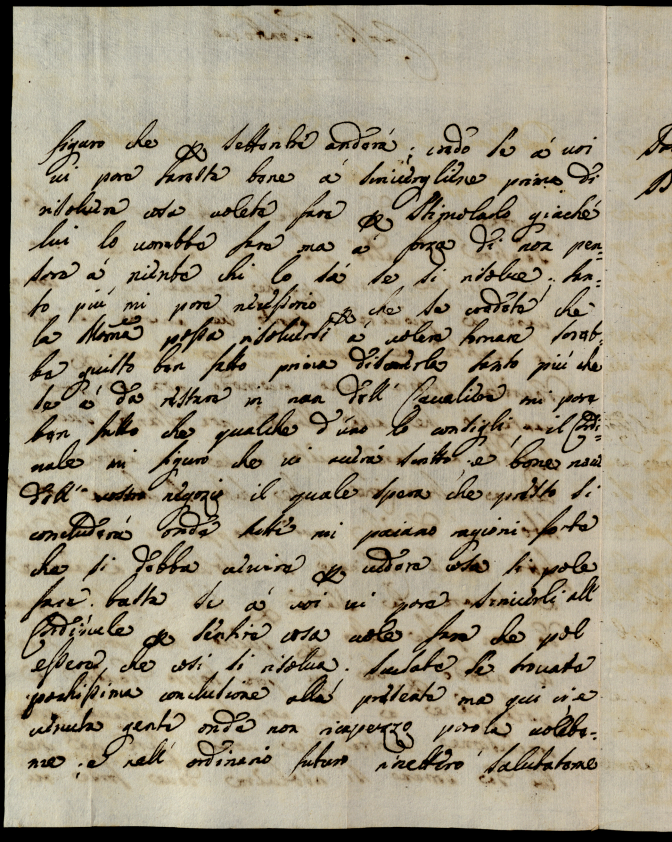 figuro che p Settembre anderà; onde se à voi
vi pare sareste bene à scrivergliene prima di
risolvere cosa volete fare p stimolarlo giaché
lui lo vorrebbe fare ma à forza di non pen=
sare à niente chi lo sà se si risolve; tan=
to più mi pare necessario p che se credete che
la possa risolversi à volere tornare sareb=
be questo ben fatto prima tanto più che
se à da restare in man dell' Cavaliere mi pare
ben fatto che qualche d'uno lo consigli il Cardi=
nale mi figuro che vi averà scritto, e bone nove
dell' vostro negozio il quale spera che presto si
concluderà onde tutte mi paiano ragioni forte
che si debba venire p vedere cosa si pole
fare. basta se à voi vi pare scriverli all
Cardinale p sentire cosa vole fare che pol
essere, che così si risolva. scusate se trovate
pochissima conclusione alla presente ma qui vi è
venuta gente onde non raccapezzo parola volete=
me, e nell' ordinario futuro salutatome